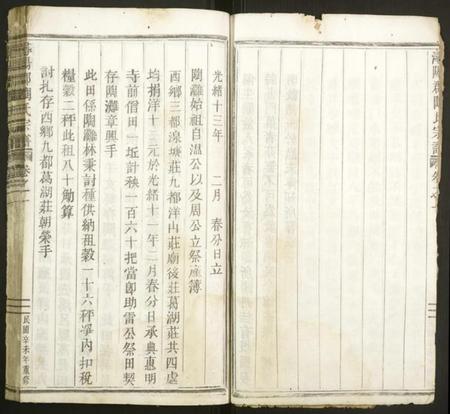 潯陽郡陶氏宗譜
光緒十三年 二月 春分日立
陶灘始祖自溫公以及周公立祭產簿
西鄉三都湶塘莊九都洋內莊廟後莊葛湖莊共四處
均捐洋十三元於光緒十一年二月春分日承典惠明
寺前僧田一坵計秧一百六十把當即助雷公祭田契
存陶灘章興手
此田係陶灘林秉討種供納租穀一十六秤爭內扣稅
糧穀二秤此租八十觔算
討扎存西鄉九都葛湖莊朝榮手
民國辛未年重修